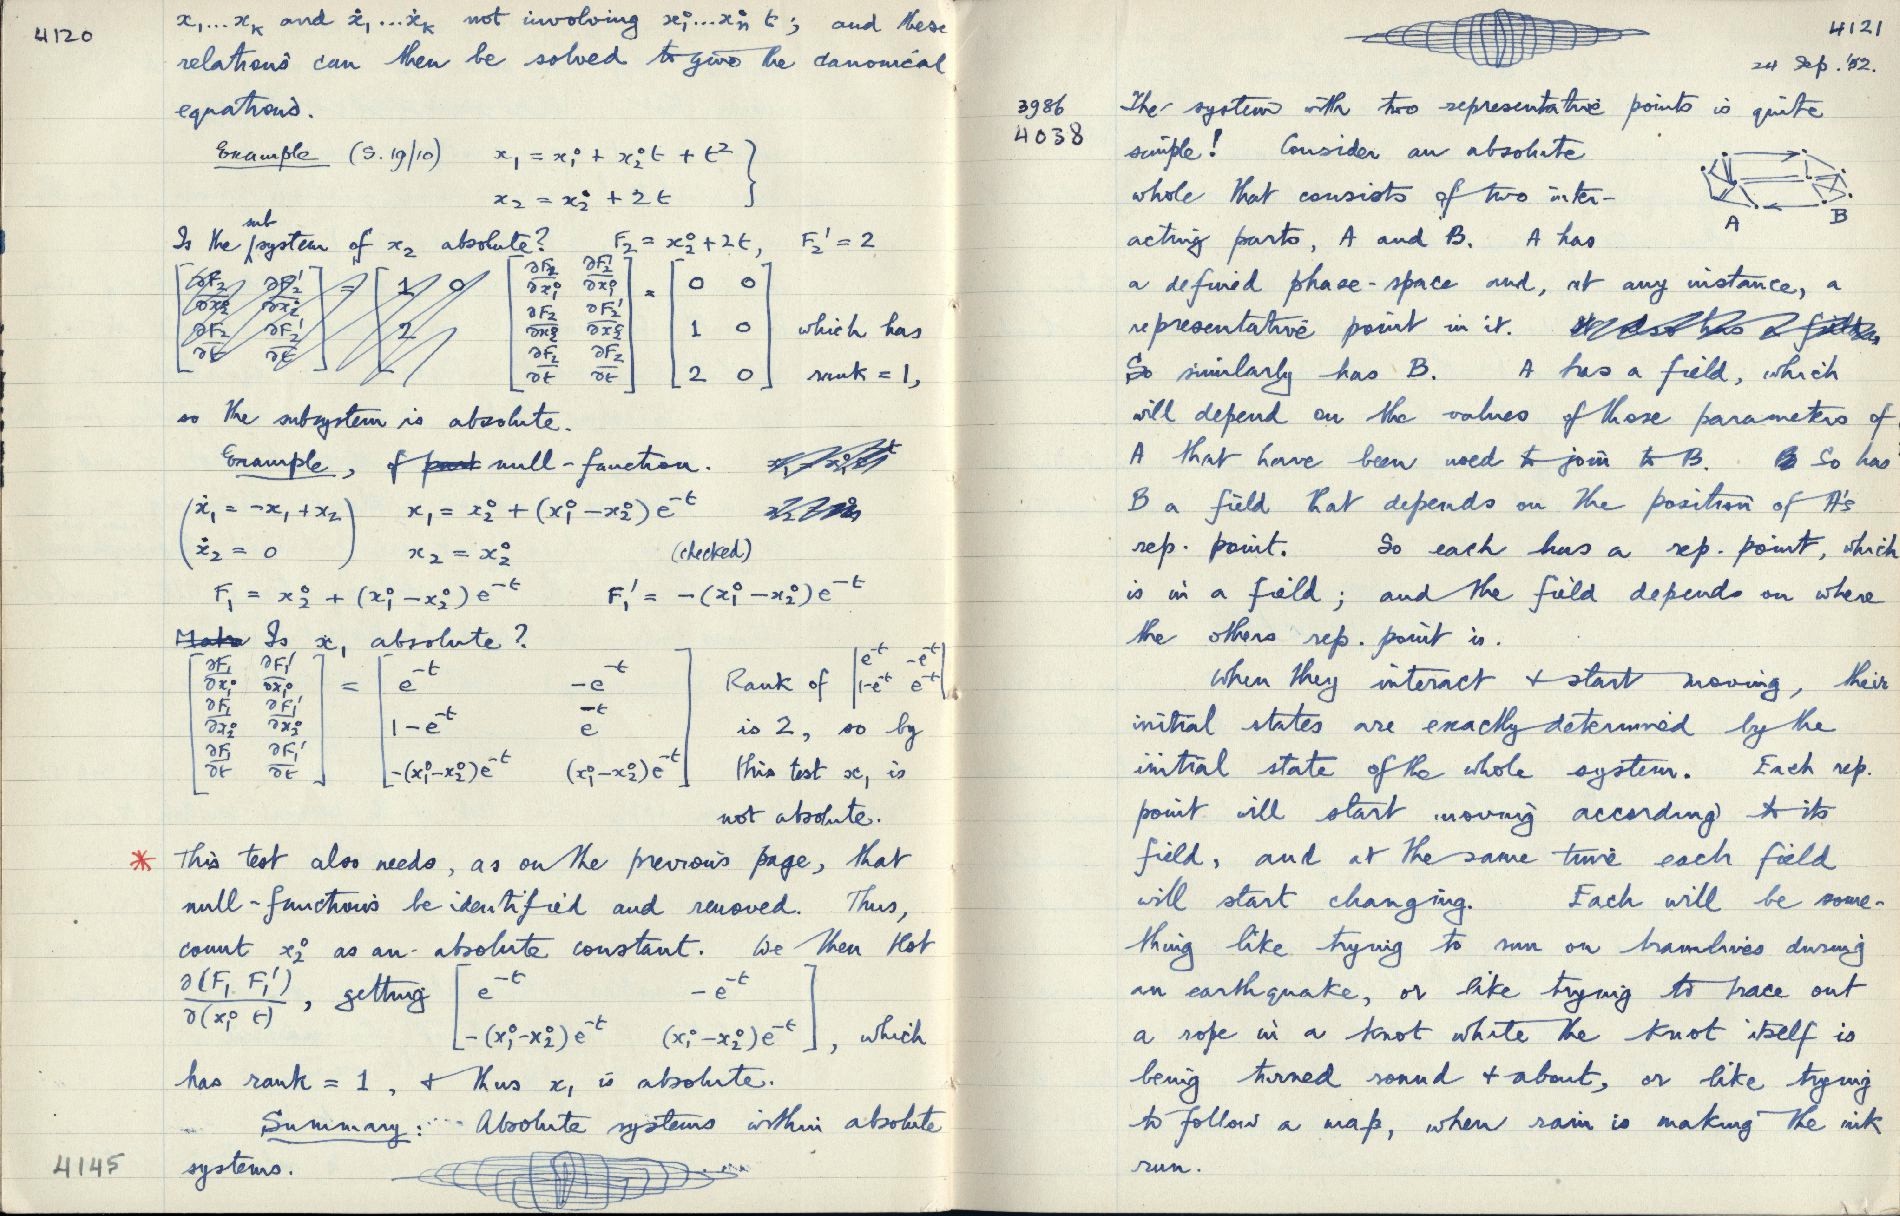 4120
x₁...xₖ and ẋ₁...ẋₖ not involving x₁°...xₙ° t ; and these
relations can then be solved to give the canonical
equations.
Example (S. 19/10) x₁ = x₁° + x₂°t + t² }
x₂ = x₂° + 2t
sub
Is the system of x₂ absolute? F₂ = x₂° + 2t, F₂' = 2
[∂F₂/∂x₁° ∂F₂'/∂x₁°] = [0 0]
[∂F₂/∂x₂° ∂F₂'/∂x₂°] [1 0] which has
[∂F₂/∂t ∂F₂/∂t] [2 0] rank = 1,
so the subsystem is absolute.
Example, of part null-function.
(ẋ₁ = -x₁ + x₂) x₁ = x₂° + (x₁° - x₂°)e⁻ᵗ
(ẋ₂ = 0) x₂ = x₂° (checked)
F₁ = x₂° + (x₁° - x₂°)e⁻ᵗ F₁' = -(x₁° - x₂°)e⁻ᵗ
Is x₁ absolute?
[∂F₁/∂x₁° ∂F₁'/∂x₁°] = [e⁻ᵗ -e⁻ᵗ] Rank of |e⁻ᵗ -e⁻ᵗ|
|1-e⁻ᵗ e⁻ᵗ|
[∂F₁/∂x₂° ∂F₁'/∂x₂°] [1-e⁻ᵗ e⁻ᵗ] is 2, so by
[∂F₁/∂t ∂F₁'/∂t] [-(x₁°-x₂°)e⁻ᵗ (x₁°-x₂°)e⁻ᵗ] this test x₁ is
not absolute.
* This test also needs, as on the previous page, that
null-functions be identified and removed. Thus,
count x₂° as an absolute constant. We then
∂(F₁ F₁')/∂(x₁° t), getting [e⁻ᵗ -e⁻ᵗ]
[-(x₁°-x₂°)e⁻ᵗ (x₁°-x₂°)e⁻ᵗ], which
has rank = 1, + thus x₁ is absolute.
Summary: Absolute systems within absolute
systems.
4145
4121
24 Sep. '52.
3986
4038
The system with two representative points is quite
simple! Consider an absolute
whole that consists of two inter-
acting parts, A and B. A has
A B
a defined phase-space and, at any instance, a
representative point in it.
So similarly has B. A has a field, which
will depend on the values of those parameters of
A that have been used to join to B. So has
B a field that depends on the position of A's
rep. point. So each has a rep. point, which
is in a field ; and the field depends on where
the others rep. point is.
When they interact + start moving, their
initial states are exactly determined by the
initial state of the whole system. Each rep.
point will start moving according to its
field, and at the same time each field
will start changing. Each will be some-
thing like trying to run on tramlines during
an earthquake, or like trying to trace out
a rope in a knot while the knot itself is
being turned round + about, or like trying
to follow a map, when rain is making the ink
run.